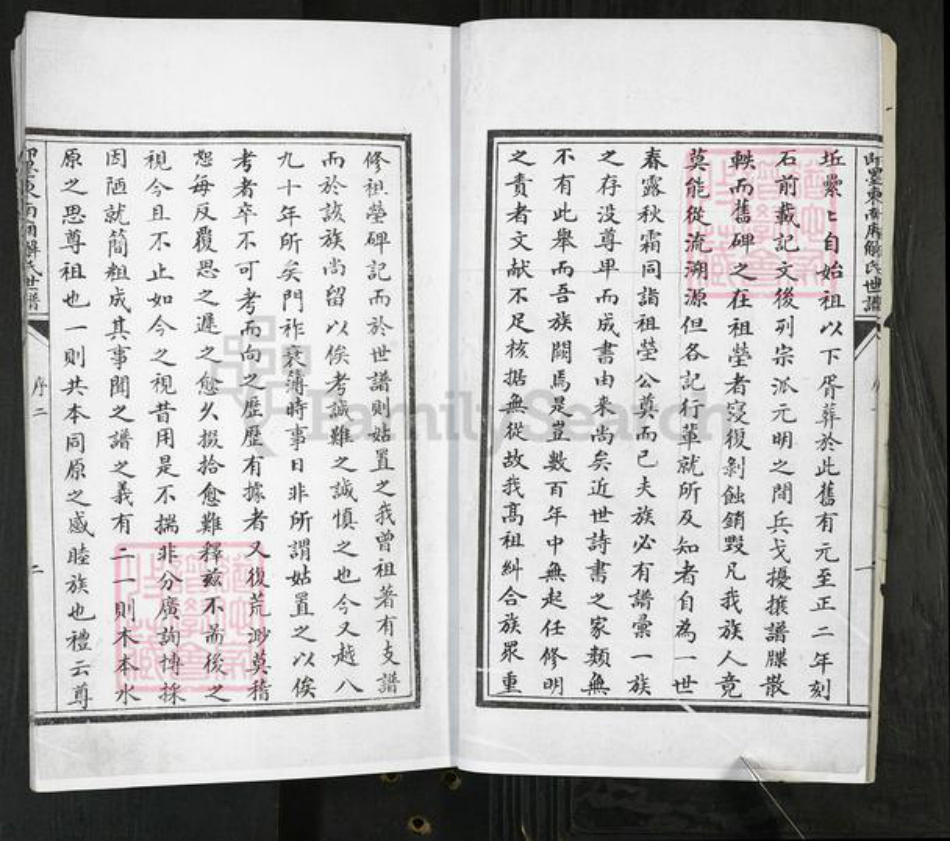 坵纍〻自始祖以下胥葬於此舊有元至正二年刻
石前載記文後列宗派元明之間兵戈擾攘譜牒散
軼而舊碑之在祖塋者寖復剝蝕銷毀凡我族人竟
莫能從流溯源但各記行輩就所及知者自為一世
春露秋霜同詣祖塋公奠而已夫族必有譜彙一族
之存沒尊卑而成書由来尚矣近世詩書之家類無
不有此舉而吾族闕焉是豈數百年中無起任修明
之責者文献不足核据無從故我高祖糾合族眾重
修祖塋碑記而於世譜則姑置之我曾祖著有支譜
而於該族尚留以俟考誠難之誠慎之也今又越八
九十年所矣門祚衰薄時事日非所謂姑置之以俟
考者卒不可考而向之歷歷有據者又復荒渺莫稽
恕每反覆思之遲之愈久掇拾愈難釋兹不啚後之
視今且不止如今之視昔用是不揣非分廣詢博採
因陋就簡粗成其事聞之譜之義有二一則木本水
原之思尊祖也一則共本同原之感睦族也禮云尊
序二
二
FamilySearch